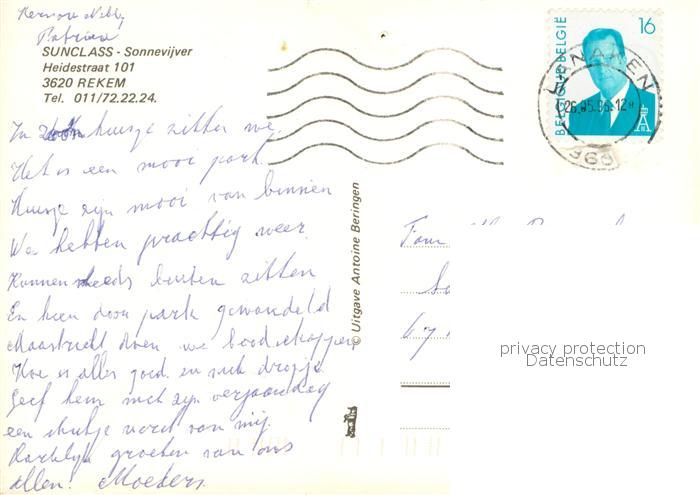 Patricia
SUNCLASS - Sonnevijver
Heidestraat 101
3620 REKEM
Tel. 011/72.22.24.
In huisje zitten we.
Het is een mooi park.
Huisje zijn mooi van binnen
We hebben prachtig weer.
Kunnen steeds buiten zitten
En heen door park gewandeld
Maastricht doen we boodschappen
Hoe is alles goed en met
Geef hem met zijn verjaardag
een van mij.
Hartelijk groeten van ons
allen! Moeder
© Uitgave Antoine Beringen
BELGIQUE-BELGIË
16
LANAKEN
26.05.95-12
Fam
67
privacy protection
Datenschutz